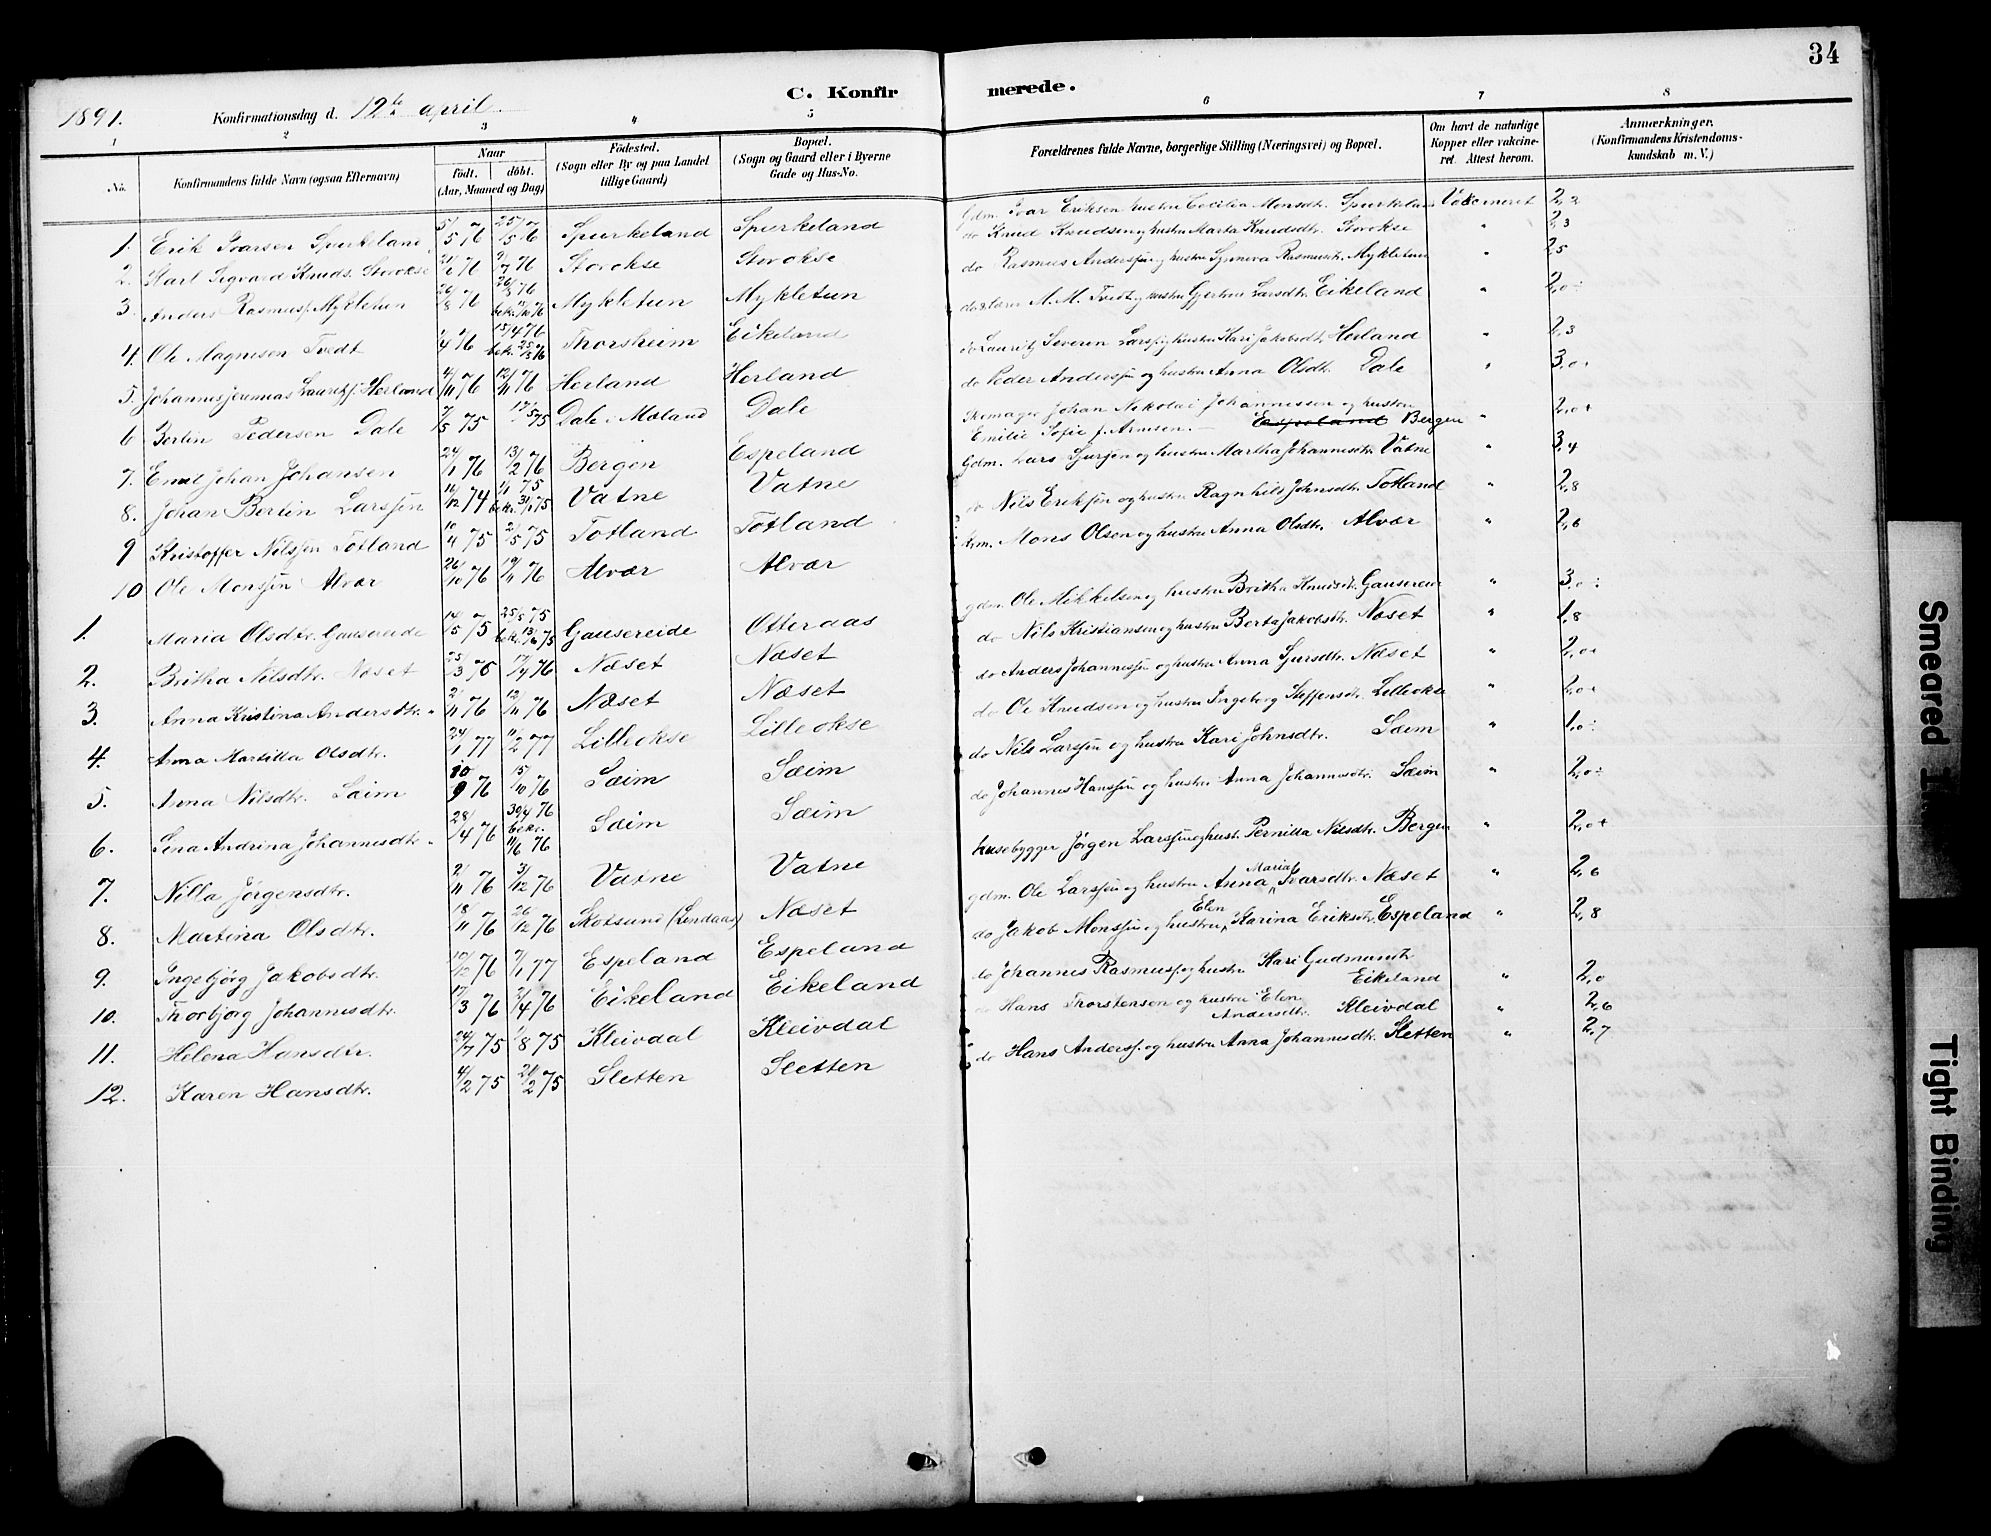 34
C. Konfirmerede.
1891. Konfirmationsdag d. 12te april
1 2 3 4 5 6 7 8
No. Konfirmandens fulde Navn (ogsaa Efternavn) Naar födt. döbt. (Aar, Maaned og Dag) Födested. (Sogn eller By og paa Landet tillige Gaard) Bopæl. (Sogn og Gaard eller i Byerne Gade og Hus-No. Forældrenes fulde Navne, borgerlige Stilling (Næringsvei) og Bopæl. Om havt de naturlige Kopper eller vakcineret. Attest herom. Anmærkninger. (Konfirmandens Kristendomskundskab m. V.)
1. Erik Ivarsen Spurkeland 5/5 76 25/5 76 Spurkeland Spurkeland Gdm. Ivar Eriksen hustru Cecilia Monsdtr. Spurkeland Vakcineret 2,2
2. Karl Sigvard Knuds. Storokse 21/6 76 9/7 76 Storokse Storokse do Knud Knudsen og hustru Marta Knudsdtr. Storokse " 2,3
3. Anders Rasmusf. Mykletun 26/8 76 bekr. Mykletun Mykletun do Rasmus Andersen og hustru Synneva Rasmusdt. Mykletun " 2,5
4. Ole Magnisen Tvedt 1/4 76 15/4 76 bekr. 25/5 76 Thorsheim Eikeland do lærer M. M. Tvedt og hustru Gjertrue Larsdtr. Eikeland " 2,0÷
5. Johannes Jeremias Lauritsf. Herland 4/11 76 12/11 76 Herland Herland do Lauritz Severin Larsf. og hustru Kari Jakobsdtr. Herland " 2,3
6 Bertin Pedersen Dale 7/5 75 17/5 75 Dale i Mæland Dale do Peder Andersen og hustru Anna Olsdt. Dale " 3,0+
7. Emil Johan Johansen 24/1 76 13/2 76 Bergen Espeland Skomager Johan Nikolai Johannessen og hustru Emilie Sofie f. Arnesen. Espeland Bergen " 2,0+
8. Johan Bertin Larssen 16/12 74 1/1 75 bekr. 31/1 75 Vatne Vatne Gdm. Lars Sjursen og hustru Martha Johannesdtr. Vatne " 3,4
9 Kristoffer Nilssen Totland 10/4 75 2/5 75 Totland Totland do Nils Eriksen og hustru Ragnhild Johnsdtr. Totland " 2,8
10 Ole Monssen Alvær 26/10 76 19/11 76 Alvær Alvær Gdm. Mons Olsen og hustru Anna Olsdtr. Alvær " 2,6
1. Maria Olsdtr. Gausereide 14/5 75 25/5 75 bekr. 13/6 75 Gausereide Otteraas gdm. Ole Mikkelsen og hustru Britha Knudsdt. Gausereid " 3,0÷
2. Britha Nilsdtr. Næset 25/3 76 17/4 76 Næset Næset do Nils Kristiansen og hustru Berta Jakobsdtr. Næset " 1,8
3. Anna Kristina Andersdtr. 2/11 76 12/11 76 Næset Næset do Anders Johannessen og hustru Anna Sjursdtr. Næset " 2,0+
4. Anna Martilla Olsdtr. 24/1 77 11/2 77 Lilleokse Lilleokse do Ole Knudsen og hustru Ingeborg Steffensdtr. Lilleokse " 2,0+
5. Anna Nilsdtr. Saim 10/9 76 15/10 76 Sæim Sæim do Nils Larssen og hustru Kari Johnsdtr. Sæim " 1,0÷
6. Sena Andrina Johannesdtr. 28/4 76 30/4 76 bekr. 11/6 76 Sæim Sæim do Johannes Hanssen og hustru Anna Johannesdtr. Sæim " 2,0÷
7. Nilla Jörgensdtr. 2/11 76 3/12 76 Vatne Vatne husebygger Jörgen Larssen og hust. Pernilla Nilsdtr. Bergen " 2,0+
8. Martina Olsdtr. 18/11 76 26/12 76 Skotsund (Lindaas) Næset gdm. Ole Larssen og hustru Anna Maria Ivarsdtr. Næset " 2,6
9. Ingebjörg Jakobsdtr. 10/12 76 7/1 77 Espeland Espeland do Jakob Monssen og hustru Elen Karina Eriksdt. Espeland " 2,8
10. Thorbjörg Johannesdtr. 17/3 76 2/4 76 Eikeland Eikeland do Johannes Rasmusf. og hustru Kari Gudmundt. Eikeland " 2,0
11. Helena Hansdtr. 24/7 75 1/8 75 Kleivdal Kleivdal do Hans Thorstensen og hustru Elen Andersdtr. Kleivdal " 2,6
12. Karen Hansdtr. 4/2 75 21/2 75 Sletten Sletten do Hans Andersf. og hustru Anna Johannesdtr. Sletten " 2,7
Smeared
Tight Binding